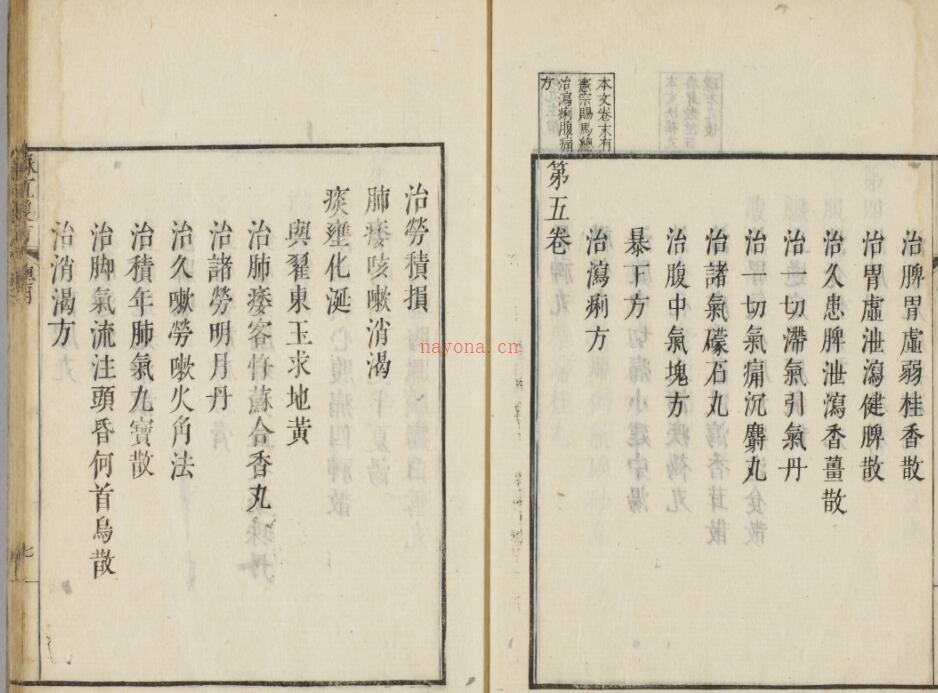 治脾胃虛弱桂香散
治胃虛泄瀉健脾散
治久患脾泄瀉香薑散
治一切滯氣引氣丹
治一切氣痛沉麝丸
治諸氣礞石丸
治腹中氣塊方
暴下方
治瀉痢方
本文卷末有
憲宗賜馬總
治瀉痢腹痛
方
第五卷
治勞積損
肺痿咳嗽消渴
痰壅化涎
與翟東玉求地黄
治肺痿客骨蘇合香丸
治諸勞明月丹
治久嗽勞嗽火角法
治積年肺氣九寶散
治脚氣流注頭昏何首烏散
治消渴方
七
nayona.cn